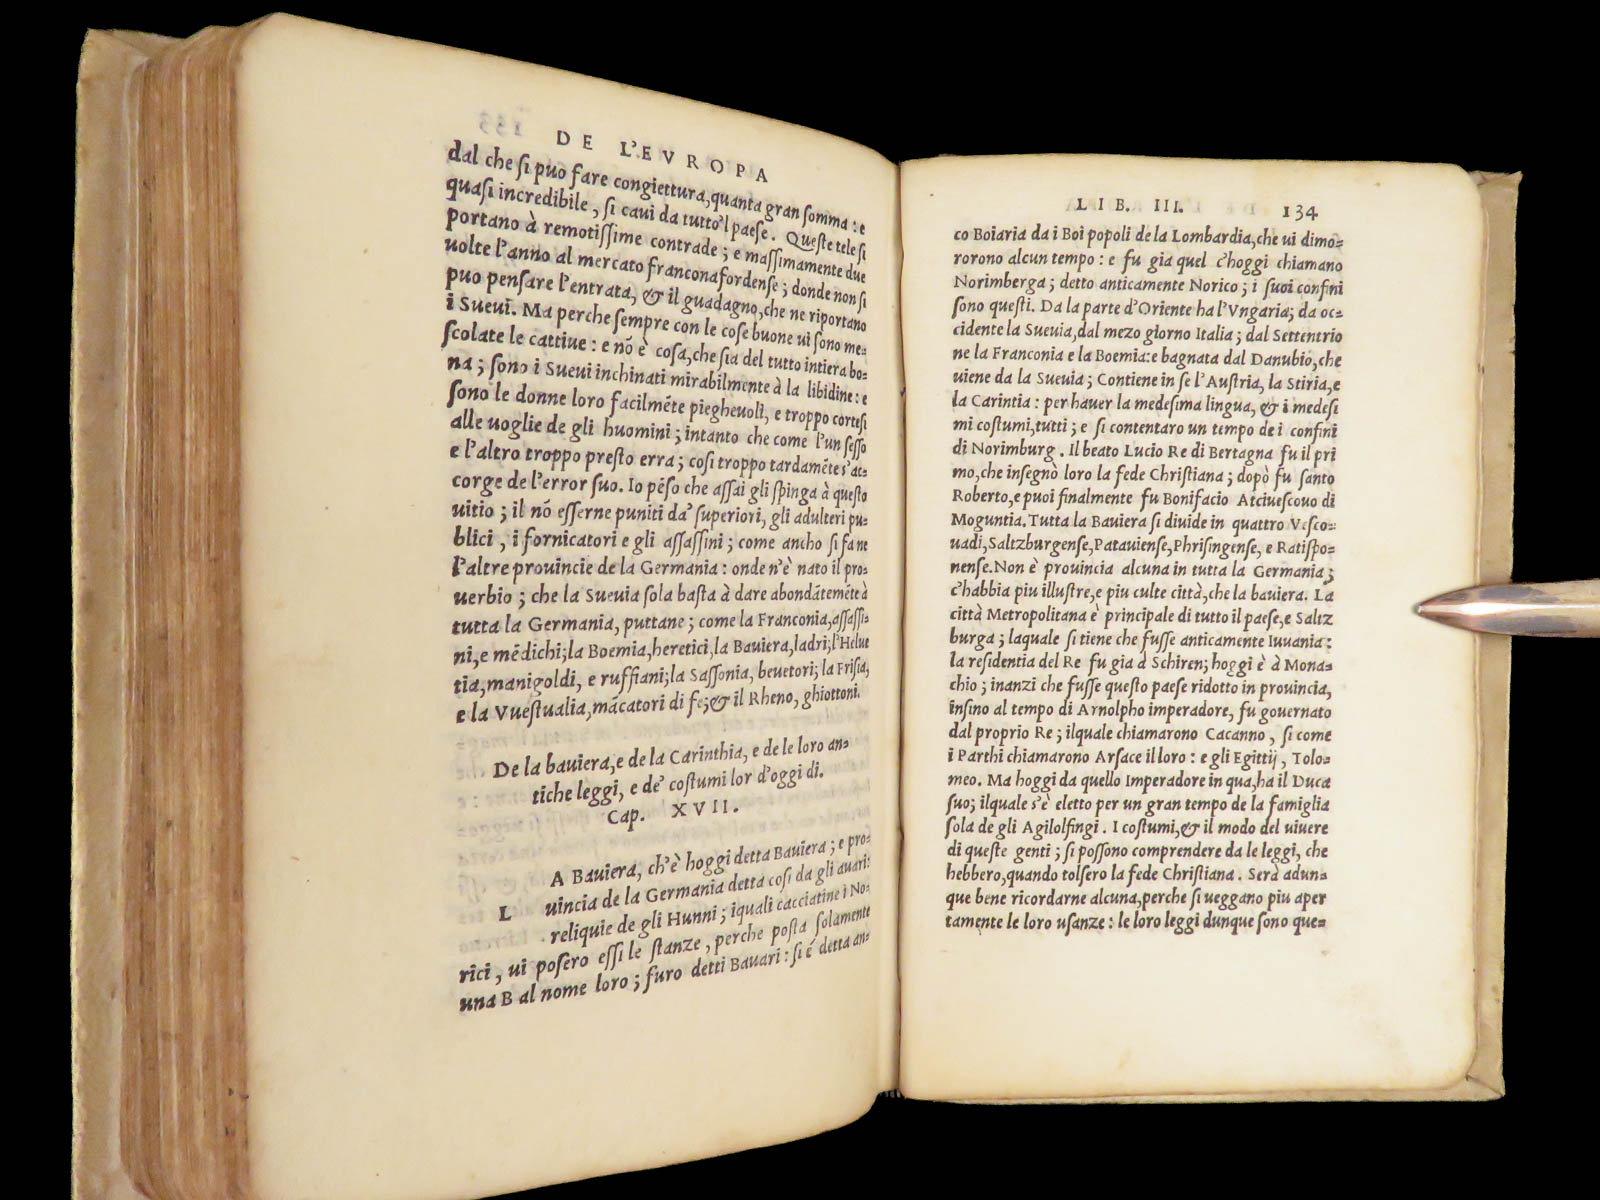 DE L'EVROPA
dal che ſi puo fare congiettura,quanta gran ſomma : e
quaſi incredibile , ſi caui da tutto'l paeſe . Queſte tele ſi
portano à remotiſſime contrade ; e maſſimamente due
uolte l'anno al mercato franconafordenſe ; donde non ſi
puo penſare l'entrata, & il guadagno,che ne riportano
i Sueui. Ma perche ſempre con le coſe buone ui ſono me-
ſcolate le cattiue : e nō è coſa,che ſia del tutto intiera bo-
na ; ſono i Sueui inchinati mirabilmente à la libidine : e
ſono le donne loro facilmēte piegheuoli, e troppo corteſi
alle uoglie de gli huomini ; intanto che come l'un ſeſſo
e l'altro troppo preſto erra ; coſi troppo tardamēte s'ac-
corge de l'error ſuo. Io pēſo che aſſai gli ſpinga à queſto
uitio ; il nō eſſerne puniti da' ſuperiori, gli adulteri pu-
blici , i fornicatori e gli aſſaſſini ; come ancho ſi fa ne
l'altre prouincie de la Germania : onde n'è nato il pro-
uerbio ; che la Sueuia ſola baſta à dare abondātemēte à
tutta la Germania, puttane ; come la Franconia,aſſaſſi-
ni,e mēdichi;la Boemia,heretici,la Bauiera,ladri;l'Helue
tia,manigoldi, e ruffiani;la Saſſonia, beuetori; la Friſia,
e la Vueſtualia,mācatori di fe;& il Rheno, ghiottoni.
De la bauiera,e de la Carinthia, e de le loro an-
tiche leggi, e de' coſtumi lor d'oggi di.
Cap. XVII.
LA Bauiera, ch'è hoggi detta Bauiera ; e pro-
uincia de la Germania detta coſi da gli auari:
reliquie de gli Hunni ; iquali cacciatine i No-
rici , ui poſero eſſi le ſtanze , perche poſta ſolamente
una B al nome loro ; furo detti Bauari : ſi é detta an-
LIB. III. 134
co Boiaria da i Boi popoli de la Lombardia,che ui dimo-
rorono alcun tempo : e fu gia quel c'hoggi chiamano
Norimberga ; detto anticamente Norico ; i ſuoi confini
ſono queſti. Da la parte d'Oriente ha l'Vngaria; da oc-
cidente la Sueuia,dal mezo giorno Italia ; dal Settentrio
ne la Franconia e la Boemia:e bagnata dal Danubio,che
uiene da la Sueuia ; Contiene in ſe l'Auſtria, la Stiria,e
la Carintia : per hauer la medeſima lingua, & i medeſi
mi coſtumi,tutti ; e ſi contentaro un tempo de i confini
di Norimburg . Il beato Lucio Re di Bertagna fu il pri
mo,che inſegnò loro la fede Chriſtiana ; dopò fu ſanto
Roberto,e puoi finalmente fu Bonifacio Atciueſcouo di
Moguntia. Tutta la Bauiera ſi diuide in quattro Veſco-
uadi,Saltzburgenſe,Patauienſe,Phriſingenſe, e Ratiſpo-
nenſe.Non è prouincia alcuna in tutta la Germania ;
c'habbia piu illuſtre,e piu culte città,che la bauiera. La
città Metropolitana è principale di tutto il paeſe,e Saltz
burga ; laquale ſi tiene che fuſſe anticamente Iuuania :
la reſidentia del Re fu gia a Schiren; hoggi è à Mona-
chio ; inanzi che fuſſe queſto paeſe ridotto in prouincia,
inſino al tempo di Arnolpho imperadore, fu gouernato
dal proprio Re ; ilquale chiamarono Cacanno , ſi come
i Parthi chiamarono Arſace il loro : e gli Egittij , Tolo-
meo. Ma hoggi da quello Imperadore in qua,ha il Duca
ſuo; ilquale s'è eletto per un gran tempo de la famiglia
ſola de gli Agilolfingi . I coſtumi,& il modo del uiuere
di queſte genti ; ſi poſſono comprendere da le leggi, che
hebbero,quando tolſero la fede Chriſtiana . Serà adun-
que bene ricordarne alcuna,perche ſi ueggano piu aper
tamente le loro uſanze : le loro leggi dunque ſono que-